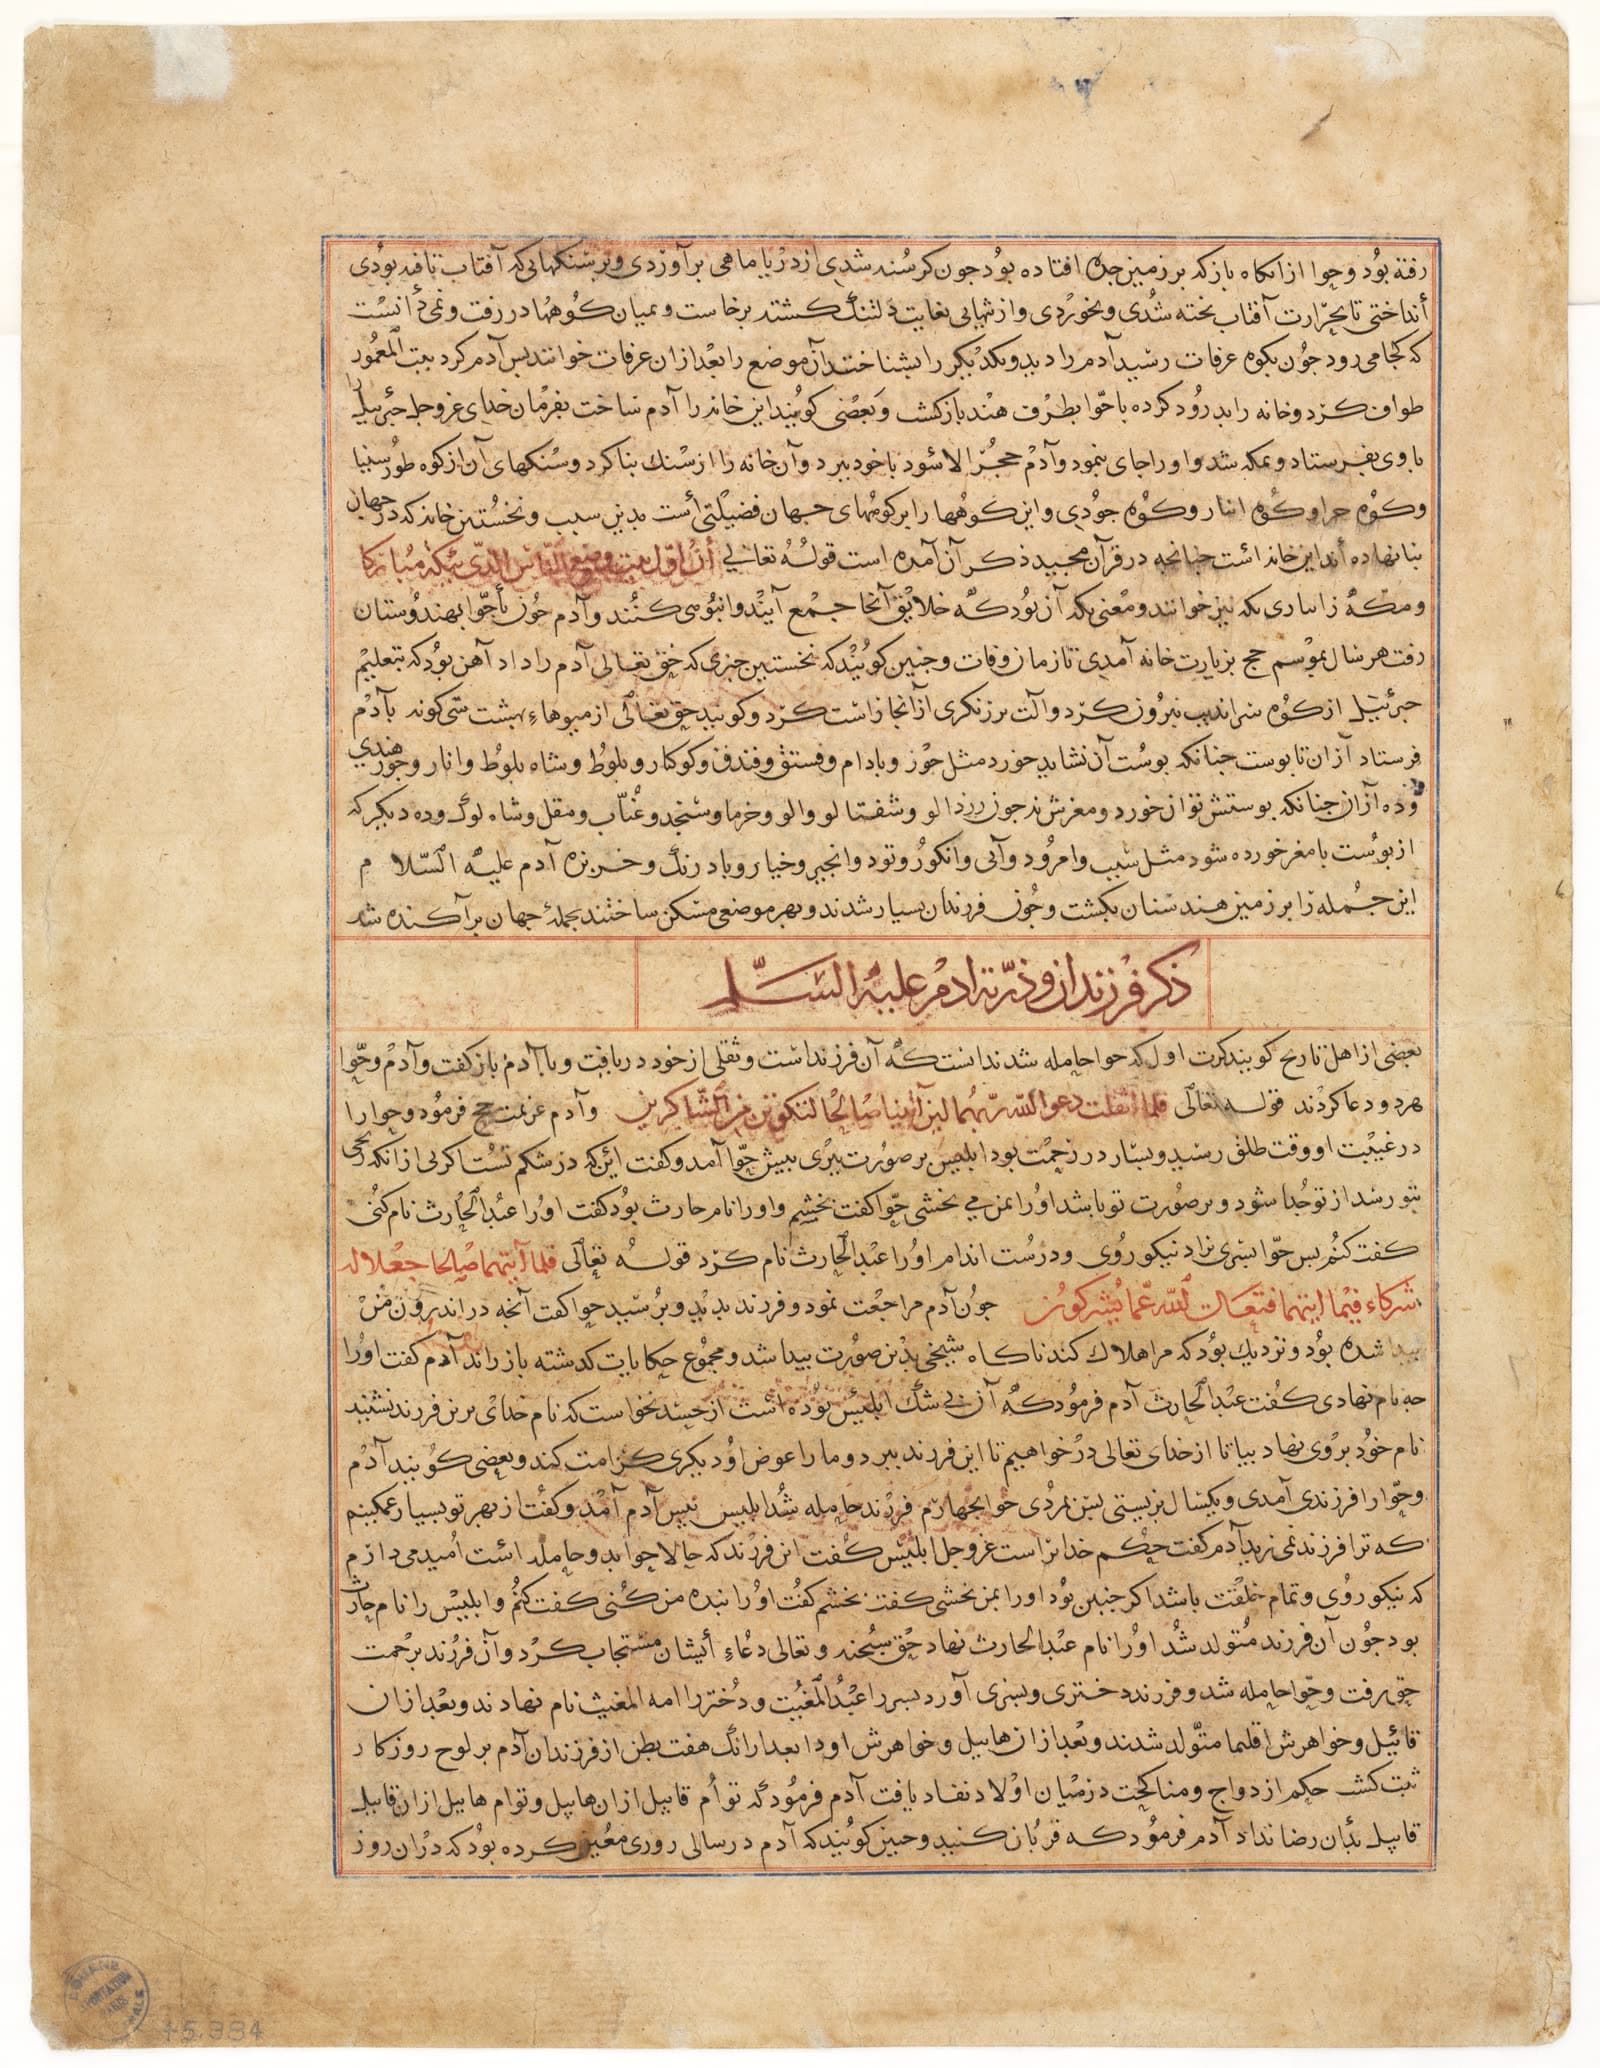 رفته بود و حوا ازانکاه بازکه بر زمین جده افتاده بود جون کرسنه شدی از دریا ماهی برآوردی و بر سنکهایی که آفتاب تافته بودی
أنداختی تا بحرارت آفتاب بخته شدی و بخوردی و از تنهایی بغایت دلتنک کشته برخاست و بمیان کوهها در رفت و نمی دانست
که کجا می رود جون بکوه عرفات رسید آدم را دید و یکدیکر را بشناختند آن موضع را بعد ازان عرفات خواندند بس آدم کرد بیت المعمور
طواف کرد و خانه را بدرود کرده با حوا بطرف هند بازکشت و بعضی کویند این خانه را آدم ساخت بفرمان خدای عزوجل جبرئیل را
با وی بفرستاد و بمکه شد و او را جای بنمود و آدم حجر الاسود با خود ببرد و آن خانه را از سنک بنا کرد و سنکهای آن از کوه طور سینا
و کوه حرا و کوه و کوه جودی و این کوهها را بر کوههای جهان فضیلتی است بدین سبب و نخستین خانه که در جهان
بنا نهاده اند این خانه است جنانجه در قرآن مجید ذکر آن آمده است قوله تعالی أن اول بیت وضع للناس للذی ببکة مبارکا
و مکه را بکه نیز خوانند و معنی بکه آن بود که خلایق آنجا جمع آیند و انبوهی کنند و آدم جون با حوا بهندوستان
رفت هر سال بموسم حج بزیارت خانه آمدی تا زمان وفات و جنین کویند که نخستین جیزی که حق تعالی آدم را داد آهن بود که بتعلیم
جبرئیل از کوه سراندیب بیرون کرد و آلت برزنکری از آنجا راست کرد و کویند حق تعالی از میوهاء بهشت سی کونه بآدم
فرستاد آزان تا بوست جنانکه بوست آن نشاید خورد مثل جوز و بادام و فستق و فندق و کوکنار و بلوط و شاه بلوط و انار و جوز هندی
و ده آزان جنانکه بوستش توان خورد و مغزش نه جون زردالو و شفتالو و الو و خرما و سنجد و عناب و مقل و شاه لوک و ده دیکر که
از بوست با مغز خورده شود مثل سیب و امرود و آبی و انکور و تود و انجیر و خیار و بادرنک و خربزه آدم علیه السلام
این جمله را بر زمین هندستان بکشت و جون فرزندان بسیار شدند و بهر موضعی مسکن ساختند بجملهٔ جهان برآکنده شد
ذکر فرزندان و ذریة ادم علیه السلم
بعضی از اهل تاریخ کویند کرت اول که حوا حامله شد ندانست که آن فرزنداست و ثقلی از خود دریافت و با آدم بازکفت و آدم و حوا
هردو دعا کردند قوله تعالی فلما اثقلت دعوا الله ربهما لئن آتیتنا صالحا لنکونن من الشاکرین و آدم عزیمت حج فرمود و حوا را
در غیبت او وقت طلق رسید و بسیار در زحمت بود ابلیس بر صورت بیری بیش حوا آمد و کفت این که در شکم تست اکر بی ازانکه رنجی
بتو رسد از تو جدا شود و بر صورت تو باشد او را بمن می بخشی حوا کفت بخشیم و او را نام حارث بود کفت او را عبد الحارث نام کنی
کفت کنم بس حوا بسری نزاد نیکوروی و درست اندام او را عبد الحارث نام کرد قوله تعالی فلما آتیهما صالحا جعلا له
شرکاء فیما اتیهما فتعالی الله عما یشرکون جون آدم مراجعت نمود و فرزند بدید و برسید حوا کفت آنجه در اندرون من
بیدا شده بود و نزدیک بود که مرا هلاک کند ناکاه شیخی بدین صورت بیدا شد و مجموع حکایات کذشته بازراند آدم کفت او را
جه نام نهادی کفت عبد الحارث آدم فرمود که آن بی شک ابلیس بوده است از حسد نخواست که نام خدای برین فرزند نشیند
نام خود بر وی نهاد بیا تا از خدای تعالی درخواهیم تا این فرزند ببرد و ما را عوض او دیکری کرامت کند و بعضی کویند آدم
و حوا را فرزندی آمدی و یکسال بزیستی بس بمردی حوا بجهارم فرزند حامله شد ابلیس بیش آدم آمد و کفت از بهر تو بسیار غمکینم
که ترا فرزند نمی زید آدم کفت حکم خدایراست عزوجل ابلیس کفت این فرزند که حالا حوا بدو حامله است امید می دارم
که نیکوروی و تمام خلقت باشد اکر جنین بود او را بمن بخشی کفت بخشم کفت او را بنده من کنی کفت کنم و ابلیس را نام حارث
بود جون آن فرزند متولد شد او را نام عبد الحارث نهاد حق سبحنه و تعالی دعاء أیشان مستجاب کرد و آن فرزند برحمت
حق رفت و حوا حامله شد و فرزند دختری و بسری آورد بسر را عبد المغیث و دختر را امة المغیث نام نهادند و بعد ازان
قابیل و خواهرش اقلیما متولد شدند و بعد ازان هابیل و خواهرش اودا بعد ازانک هفت بطن از فرزندان آدم بر لوح روزکار
ثبت کشت حکم ازدواج و مناکحت در میان اولاد نفاد یافت آدم فرمود که توأم قابیل ازان هابیل و توام هابیل ازان قابیل
قابیل بدان رضا نداد آدم فرمود که قربان کنید و جنین کویند که آدم در سالی روزی معین کرده بود که دران روز
45.384